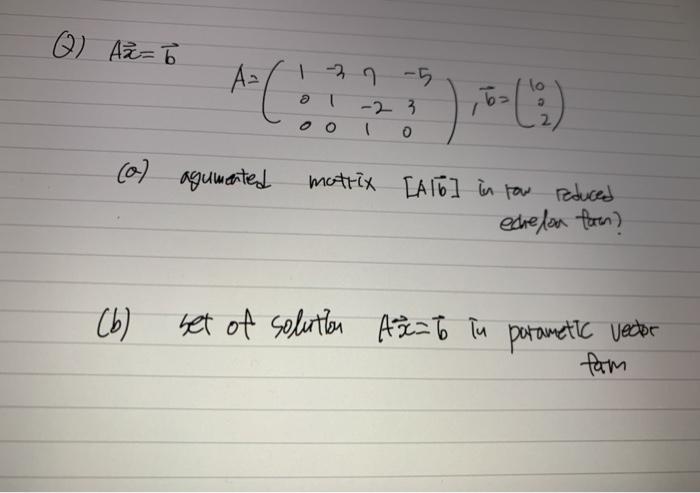 Q) Ax⃗ = b⃗
A = ( 1 -3 7 -5
0 1 -2 3
0 0 1 0 ) , b⃗ = ( 10
0
2 )
(a) agumented matrix [A|b⃗] in row reduced
echelon form?
(b) set of solution Ax⃗ = b⃗ in parametic vector
form